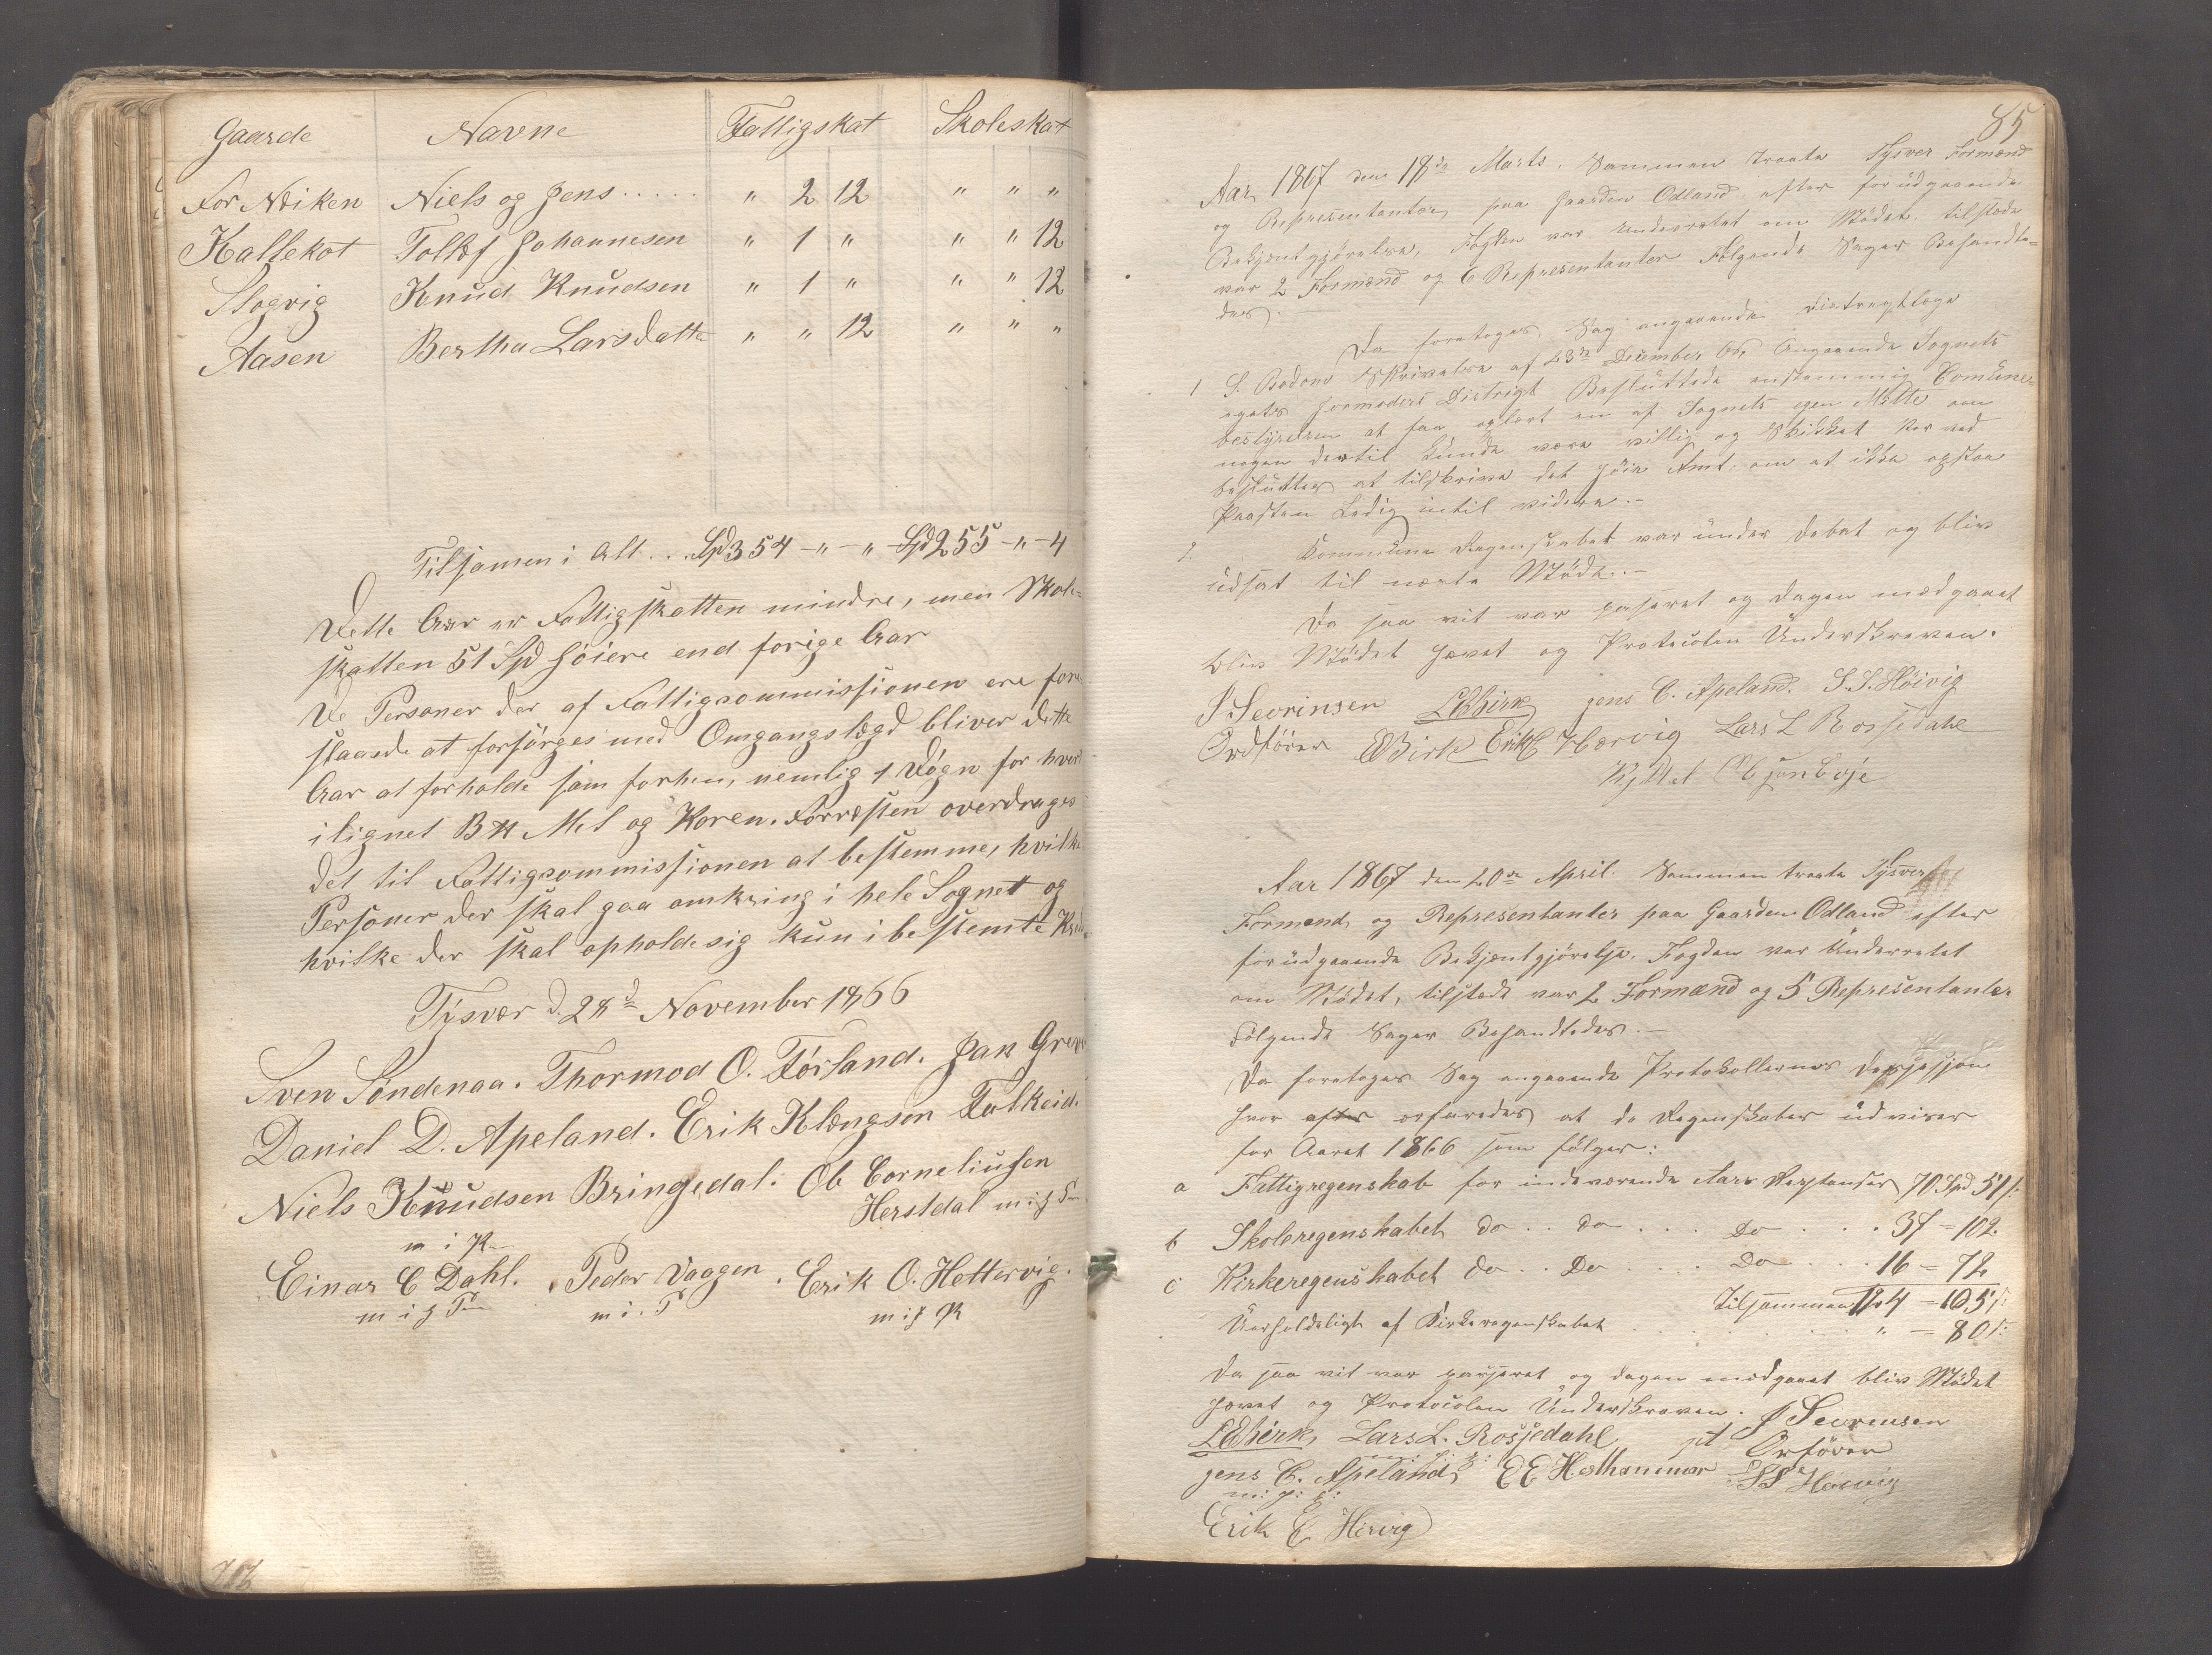 Gaarde Navne Fattigskat Skoleskat
For Nviken Niels og Jens..... " 2 12 " " "
Kallekot Tollef Johannesen " 1 " " " 12
Slogvig Knud Knudsen " 1 " " " 12
Aasen Bertha Larsdatte " " 12 " " "
Tilsamen i Alt... Spd 354 - " - " Spd 255 - " - 4
Dette Aar er Fattigskatten mindre, men Skole=
skatten 51 Spd høiere end forige Aar
De Personer der af Fattigcommissionen ere fore
slaaede at forsørges med Omgangslægd bliver dette
Aar at forholde som forhen, nemlig 1 Døgn for hver
ilignet Mel og Koren. Forresten overdrages
det til Fattigcommissionen at bestemme, hvilke
Personer der skal gaa omkring i hele Sognet og
hvilke der skal opholde sig kun i bestemte
Tysvær d. 28d November 1866
Sven Søndenaa. Thormod O. Førland. Jan
Daniel D. Apeland. Erik Klængsen Falkeid.
Niels Knudsen Bringedal. Ole Corneliussen
Herstdal m i f P
m i P
Einar C Dahl. Peder Vaagen. Erik O. Hettervig.
m i f P m i P m i f P
85
Aar 1867 den 18de Marts. Sammen traate Tysver Formænd
og Representanter paa Gaarden Odland efter forudgaaende
Bekjentgjørelse, Fogden var Underrettet om Mødet. tilstede
var 2 Formænd og 6 Representanter Følgende Sager Behandle=
des. —
Da foretoges Sag angaaende Distregtlæge
1 S. Bødens Skrivelse af 23de December Angaaende Sognets
egets Jormoders Distrigt Besluttede enstemmig Comune=
bestyrelsen at faa oplært en af Sognets egen Mitte om
nogen dertil kunde være villig og Skikket Hermed
besluttes at tilskrive det høie Amt. om at ikke opstaa
Posten Ledig intil videre. —
2 Kommune Regenskabet var under Debat og bliv
udsat til neste Møde. —
Da saa vit var paseret og Dagen medgaaet
bliv Mødet hævet og Protocolen Underskreven.
S Severinsen LBBirk jens C. Apeland. S. S. Høivig
Ordfører EBirk Erik E Hærvig Lars L Rossedahl
Aar 1867 den 20de April. Sammen traate Tysver
Formænd og Representanter paa Gaarden Odland efter
forudgaaende Bekjentgjørelse. Fogden var Underrettet
om Mødet, tilstede var 2 Formænd og 5 Representanter
Følgende Sager Behandledes. —
Da foretoges Sag angaaende Protokollernes
hvor efter erfaredes at de Regenskaber udviser
for Aaret 1866 som følger:
a Fattigregenskab for indeværende Aars Restanser 70 Spd 51 s:
b Skoleregenskabet do.. do.... Do.... 37 = 102.
c Kirkeregenskabet do.. Do.... Do.... 16 = 72
Tilsammen 124 = 105 s:
Uerholdeligt af Kirkeregenskabet........ " = 80 s:
Da saa vit var passeret og dagen medgaaet bliv Mødet
hævet og Protocolen Underskreven. S Severensen
LBBirk, Lars L. Rossjedahl pt Orfører
jens C. Apeland, E E Hesthammer S S Høievig
m: p: p:
Erik E Hervig